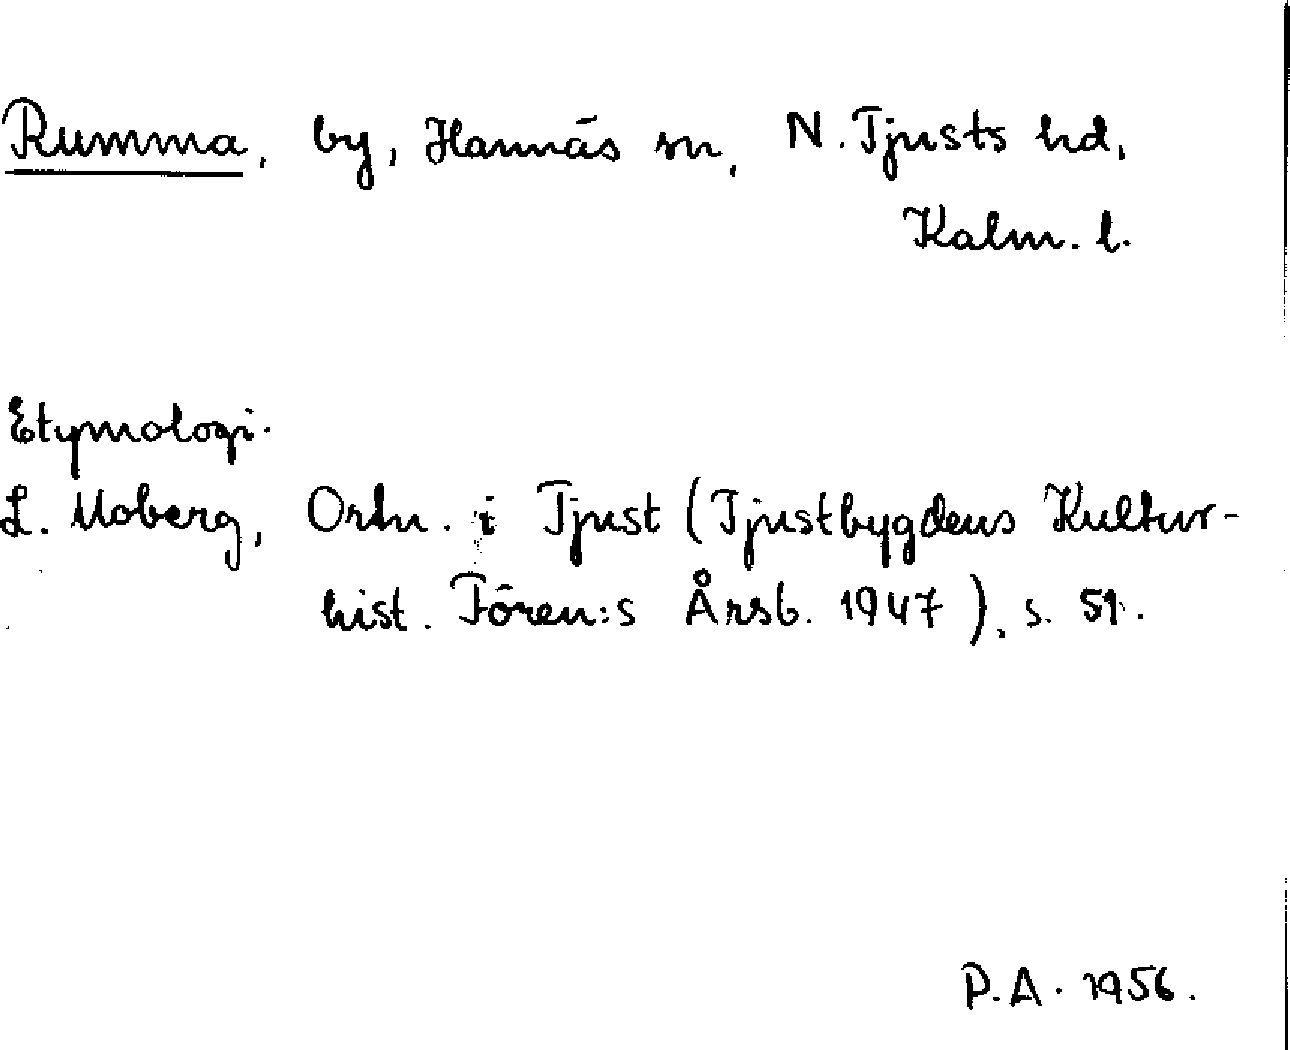 Rumma, by, Hannäs sn, N. Tjusts hd,
Kalm. l.
Etymologi.
L. Moberg, Ortn. i Tjust (Tjustbygdens Kultur-
hist. Fören:s Årsb. 1947), s. 59.
P.A. 1956.